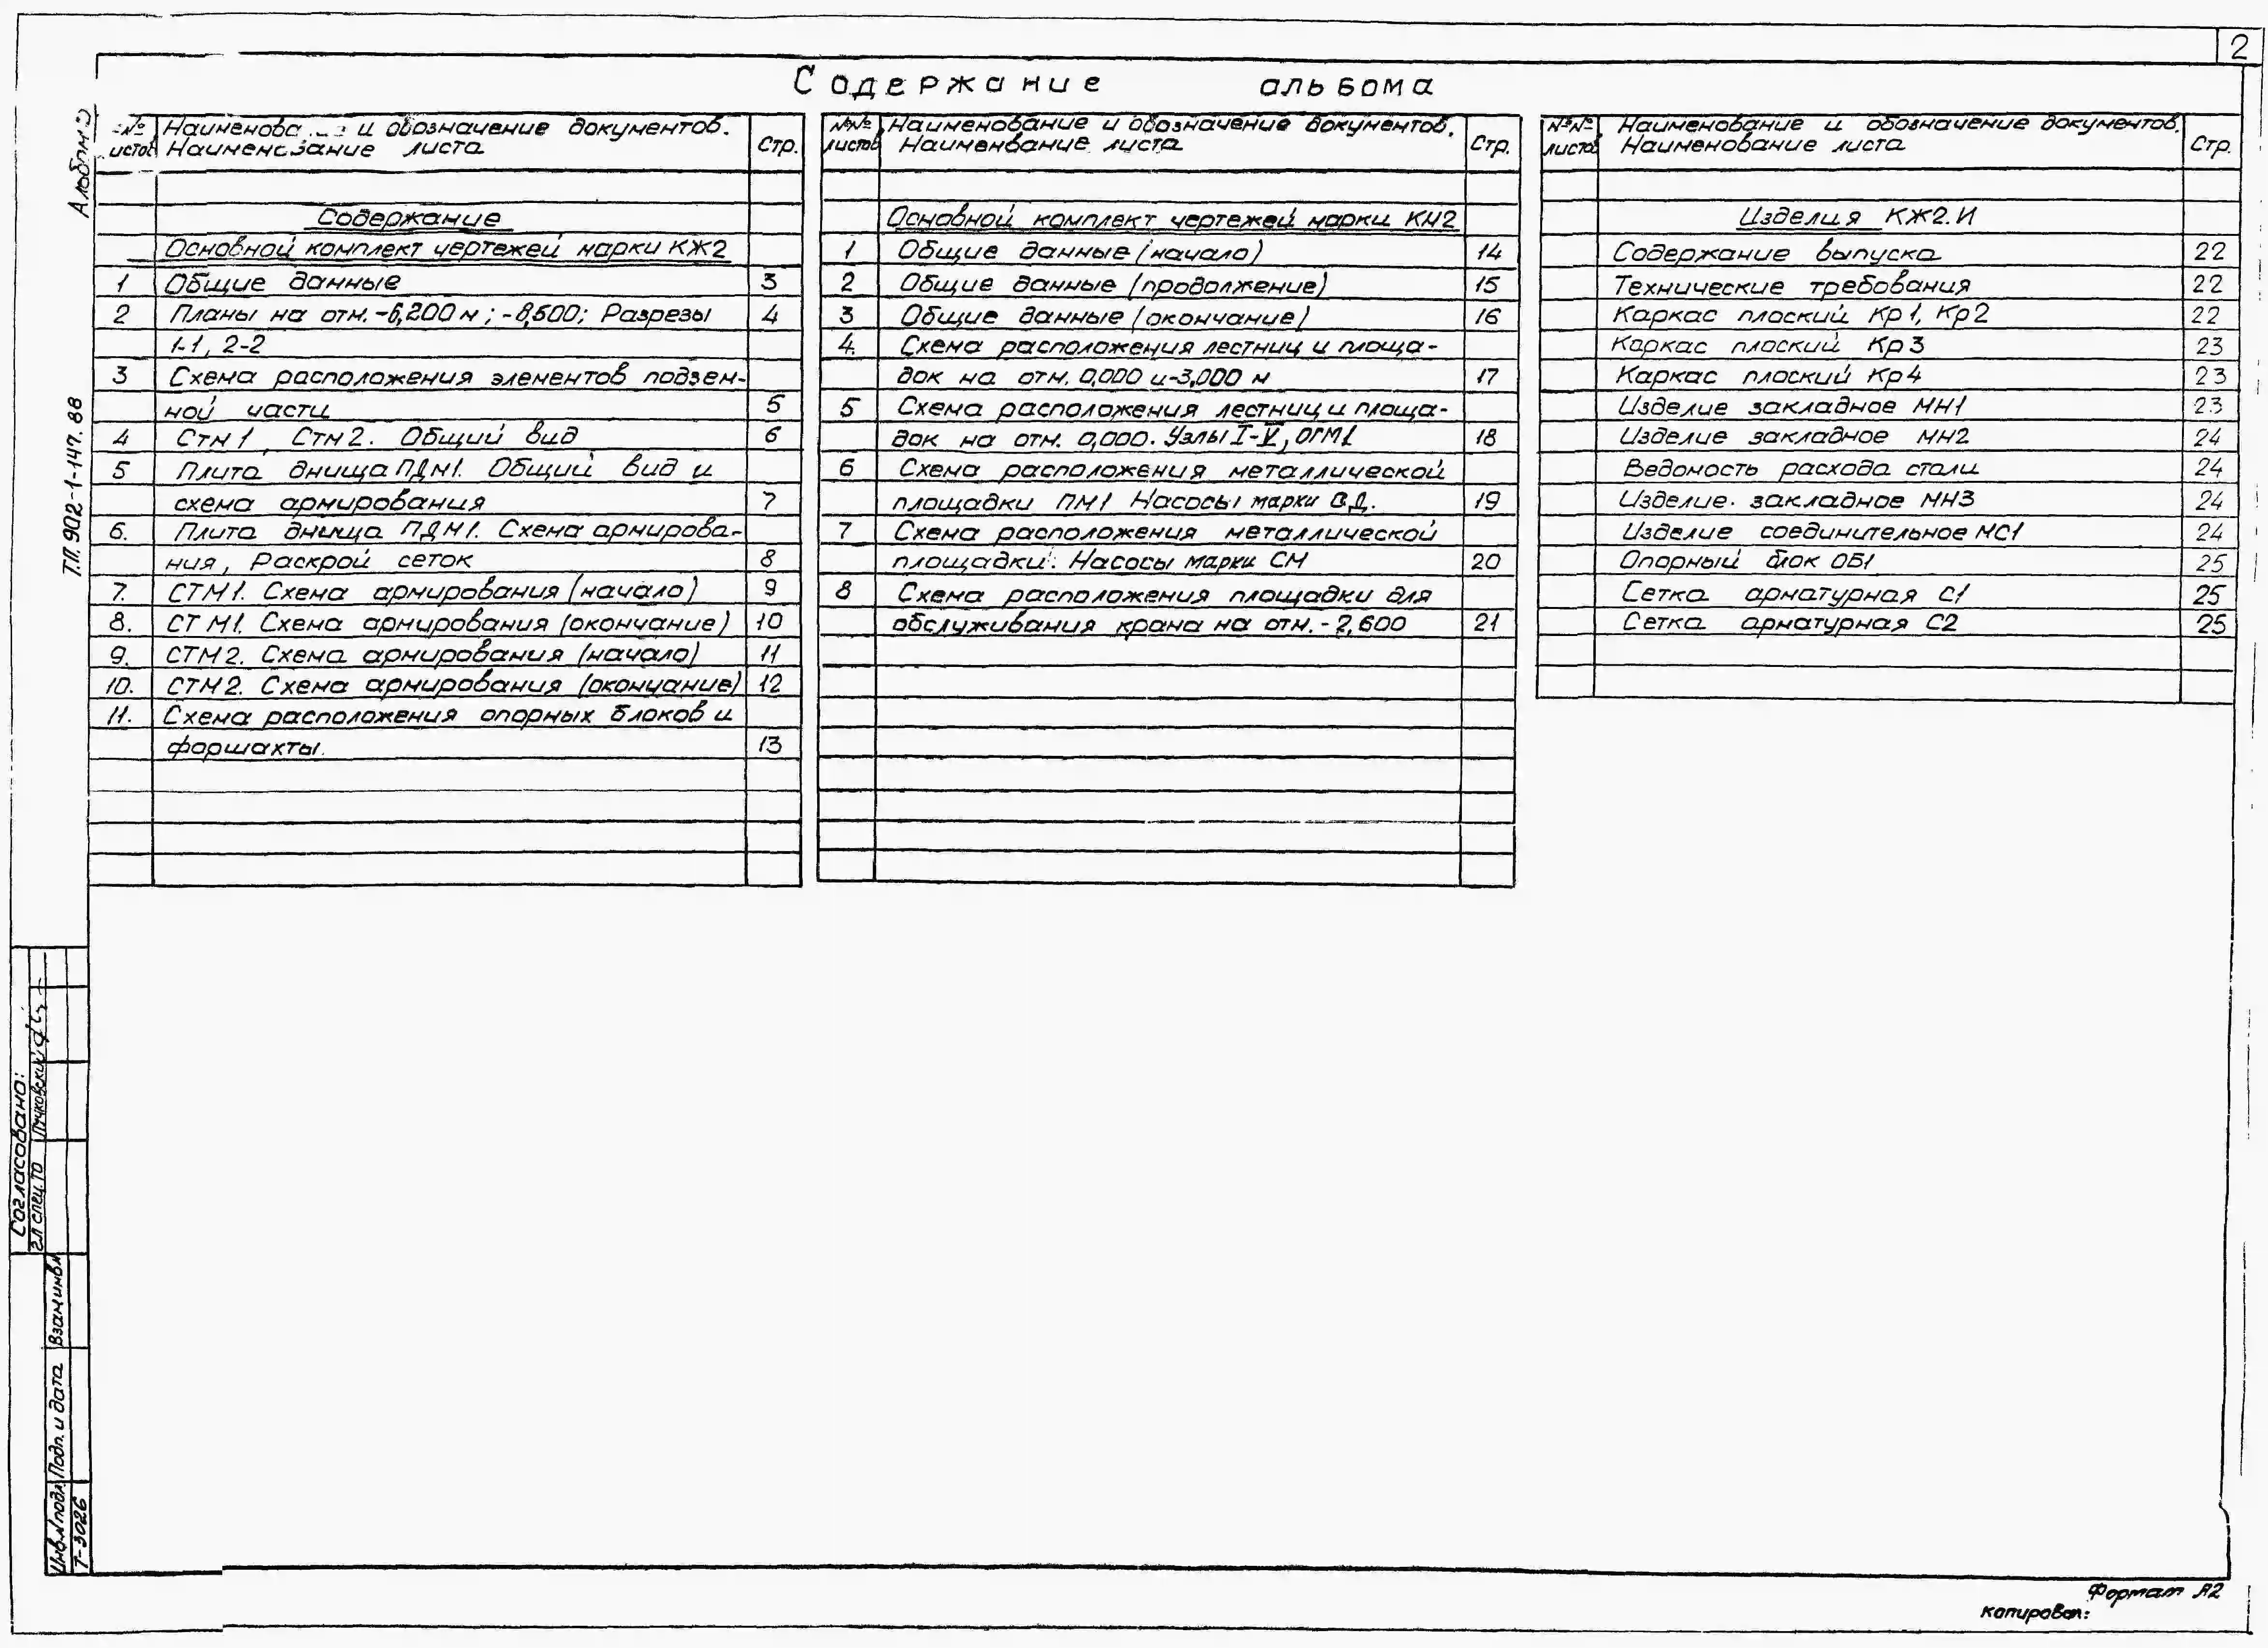 2
Содержание альбома
Альбом
Т.П. 902-1-147.88
и обозначение документов.
Наименование листа
Стр.
Содержание
Основной комплект чертежей марки КЖ2
1 Общие данные 3
2 Планы на отм. -6,200 м; -8,600; Разрезы 4
1-1, 2-2
3 Схема расположения элементов подзем-
ной части 5
4 Стм1, Стм2. Общий вид 6
5 Плита днища ПДМ1. Общий вид и
схема армирования 7
6. Плита днища ПДМ1. Схема армирова-
ния, Раскрой сеток 8
7. СТМ1. Схема армирования (начало) 9
8. СТМ1. Схема армирования (окончание) 10
9. СТМ2. Схема армирования (начало) 11
10. СТМ2. Схема армирования (окончание) 12
11. Схема расположения опорных блоков и
форшахты. 13
№№ листов
Наименование и обозначение документов.
Наименование листа
Стр.
Основной комплект чертежей марки КМ2
1 Общие данные (начало) 14
2 Общие данные (продолжение) 15
3 Общие данные (окончание) 16
4. Схема расположения лестниц и площа-
док на отм. 0,000 и -3,000 м 17
5 Схема расположения лестниц и площа-
док на отм. 0,000. Узлы I-V, ОГМ1 18
6 Схема расположения металлической
площадки ПМ1 Насосы марки ВД. 19
7 Схема расположения металлической
площадки. Насосы марки СМ 20
8 Схема расположения площадки для
обслуживания крана на отм. -2,600 21
№№ листов
Наименование и обозначение документов.
Наименование листа
Стр.
Изделия КЖ2.И
Содержание выпуска 22
Технические требования 22
Каркас плоский Кр1, Кр2 22
Каркас плоский Кр3 23
Каркас плоский Кр4 23
Изделие закладное МН1 23
Изделие закладное МН2 24
Ведомость расхода стали 24
Изделие закладное МН3 24
Изделие соединительное МС1 24
Опорный блок ОБ1 25
Сетка арматурная С1 25
Сетка арматурная С2 25
Согласовано:
Гл спец. ТО
Взам инв.
Подп. и дата
Инв.№ подл.
Т-3026
Формат А2
Копировал: